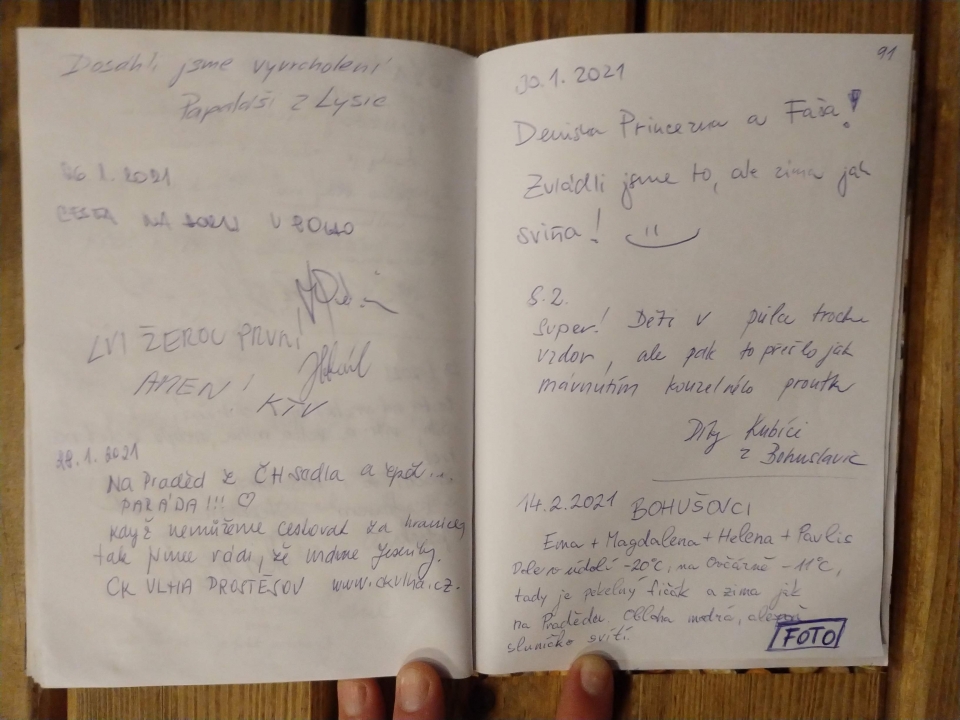 Dosáhli jsme vyvrcholení
z Lysic
26.1.2021
CESTA NA HORU V
LVI ŽEROU PRVNÍ!
AMEN!
KTV
28.1.2021
Na Praděd z ČH-sedla a zpět...
PARÁDA!!! ♡
když nemůžeme cestovat za hranice,
tak jsme rádi, že máme Jeseníky.
CK VLHA PROSTĚJOV www.ckvlha.cz.
91
30.1.2021
Deniska Princezna a Fáša!
Zvládli jsme to, ale zima jak
sviňa!
5.2.
Super! Děti v půlce trochu
vzdor, ale pak to přešlo jak
mávnutím kouzelného proutku
Díky Kubíci
z Bohuslavic
14.2.2021 BOHUŠOVCI
Ema + Magdalena + Helena + Pavlis
Dole v údolí -20°C, na Ovčárně -11°C,
tady je pekelný fičák a zima jak
na Pradědu. Obloha modrá,
sluníčko svítí.
FOTO